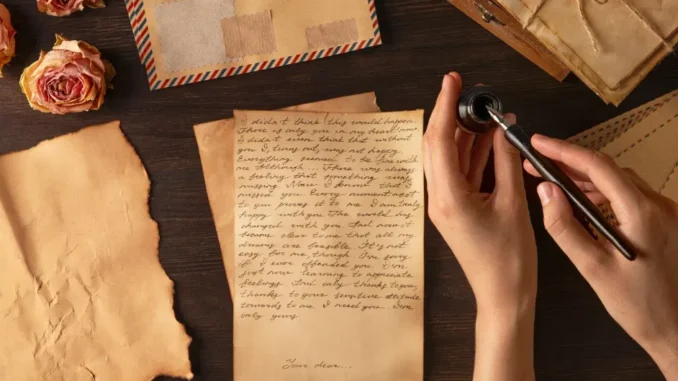 I didn't think this would happen.
There is only you in my heart now.
I didn't even think that without
you I, turns out, was not happy.
Everything seemed to be fine with
me Although... There was always
a feeling that something was
missing Now I know that I
missed you Every moment next
to you proves it to me I am truly
happy with you The world has
changed with you. And now it
became clear to me that all my
dreams are feasible. It's not
easy for me, though I'm sorry
if I ever offended you I'm
just now learning to appreciate
feelings. And only thanks to you,
thanks to your sensitive attitude
towards to me I need you. I'm
only yours
Your dear...